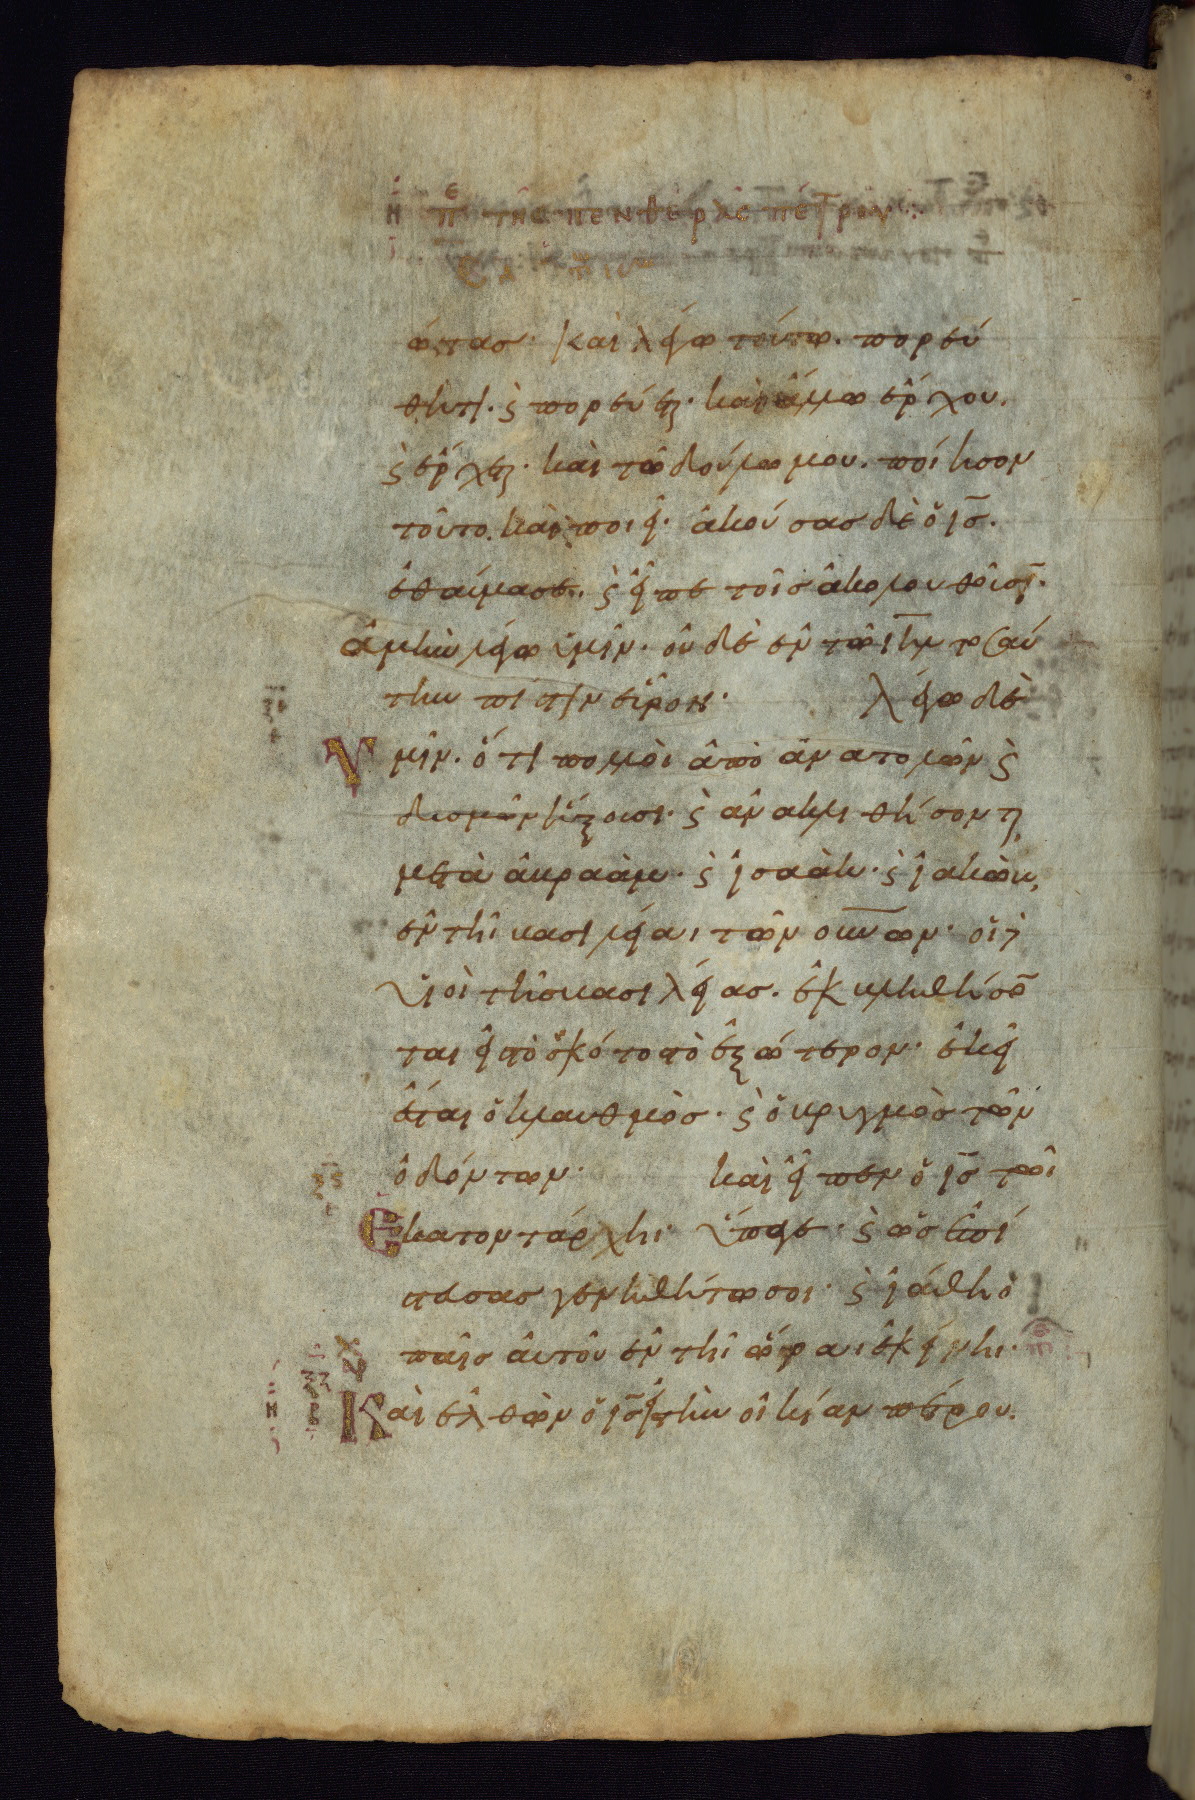 Η πε της πενθερας πετρου
ώτας· και λέγω τούτω. πορεύ
θητι. ϛ πορεύεται. και άλλω έρχου.
ϛ έρχεται. και τῶ δούλω μου. ποίησον
τοῦτο. και ποιεῖ. ἀκούσας δὲ ὁ ις.
ἐθαύμασε. ϛ εἶπε τοῖς ἀκολουθοῦσιν.
ἀμὴν λέγω ὑμῖν. οὐδὲ ἐν τῶι ιηλ τοσαύ
την πίστιν εὗρον. λέγω δὲ
Υμῖν. ὅτι πολλοὶ ἀπὸ ἀνατολῶν ϛ
δυσμῶν ἥξουσι. ϛ ἀνακλιθήσονται
μετὰ ἀβραὰμ. ϛ ἰσαὰκ. ϛ ἰακὼβ,
ἐν τῆι βασιλείαι τῶν ουνων. οἱ δὲ
υἱοὶ τῆς βασιλείας. ἐκβληθήσο
ται εἰς τὸ σκότος τὸ ἐξώτερον. ἐκεῖ
ἔσται ὁ κλαυθμὸς. ϛ ὁ βρυγμὸς τῶν
ὀδόντων. καὶ εἶπεν ὁ ις τῶι
Εκατοντάρχηι. ὕπαγε. ϛ ὡς ἐπί
στευσας γενηθήτω σοι. ϛ ἰάθη ὁ
παῖς αὐτοῦ ἐν τῆι ὥραι ἐκείνηι.
Και ἐλθὼν ὁ ις εἰς τὴν οἰκίαν πέτρου.